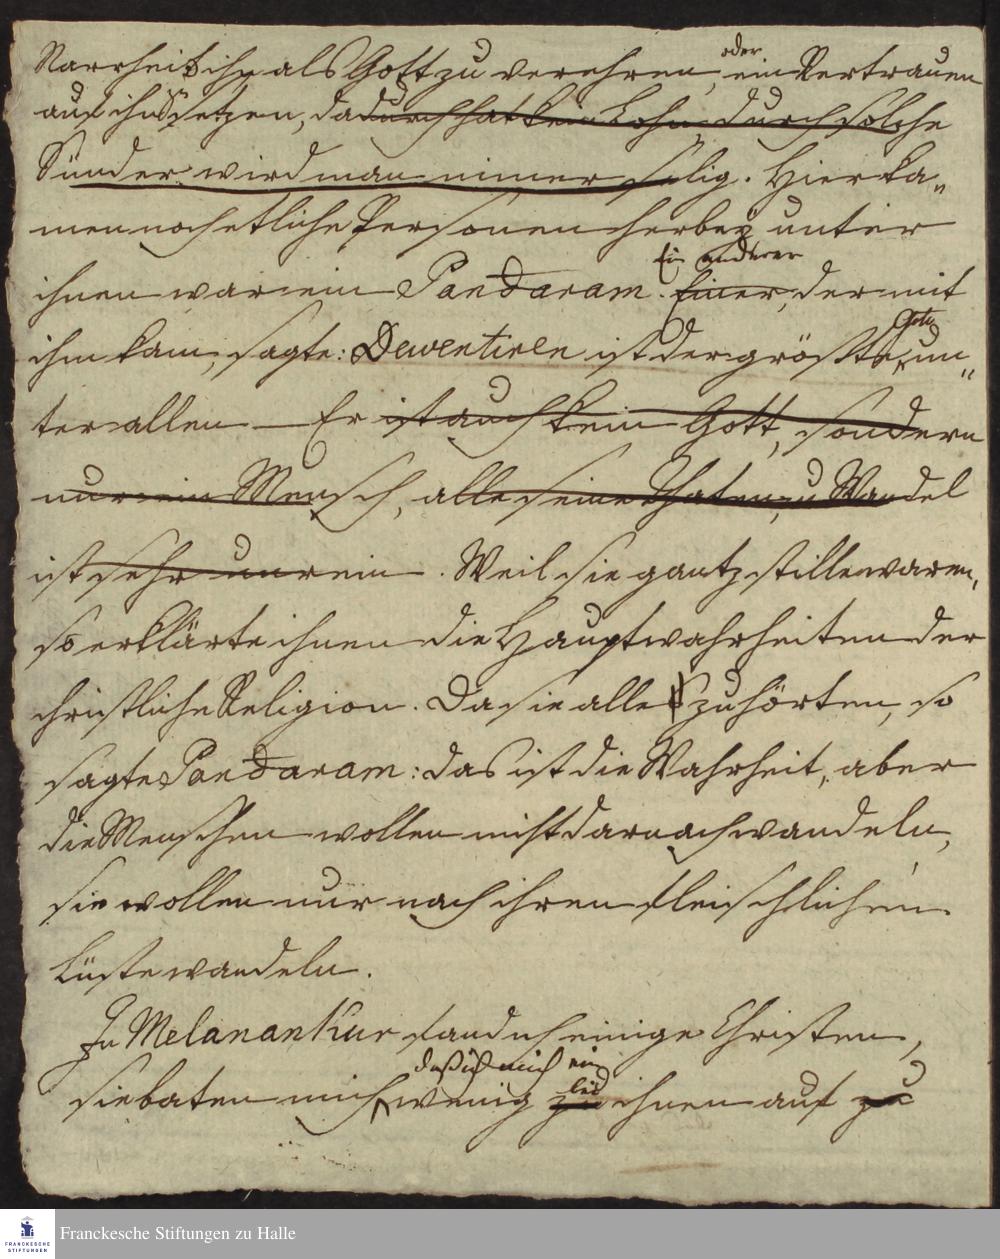 Narrheit ihn als Gott zu verehren, oder ein Vertrauen
auf ihn zu setzen, dadurch hat kein Lohn, durch solche
Sünder wird man nimer selig. Hier ka„
men noch etliche Personen herbey unter
ihnen war ein Pandaram. Einer, Ein anderer der mit
ihm kam, sagte: Dewentiren ist der größte Gott, un„
ter allen — Er ist auch kein Gott, sondern
nur ein Mensch, alle seine Thaten, u Wandel
ist sehr unrein. Weil sie gantz stille waren,
so erklärte ihnen die Hauptwahrheiten der
christliche Religion. Da sie alle zuhörten, so
sagte Pandaram: das ist die Wahrheit, aber
die Menschen wollen nicht darnach wandeln,
sie wollen nur nach ihren fleischlichen
Lüste wandeln.
In Melanankur fand ich einige Christen,
sie baten mich, daß ich mich ein wenig bei ihnen auf zu
Franckesche Stiftungen zu Halle
FRANCKESCHE
STIFTUNGEN